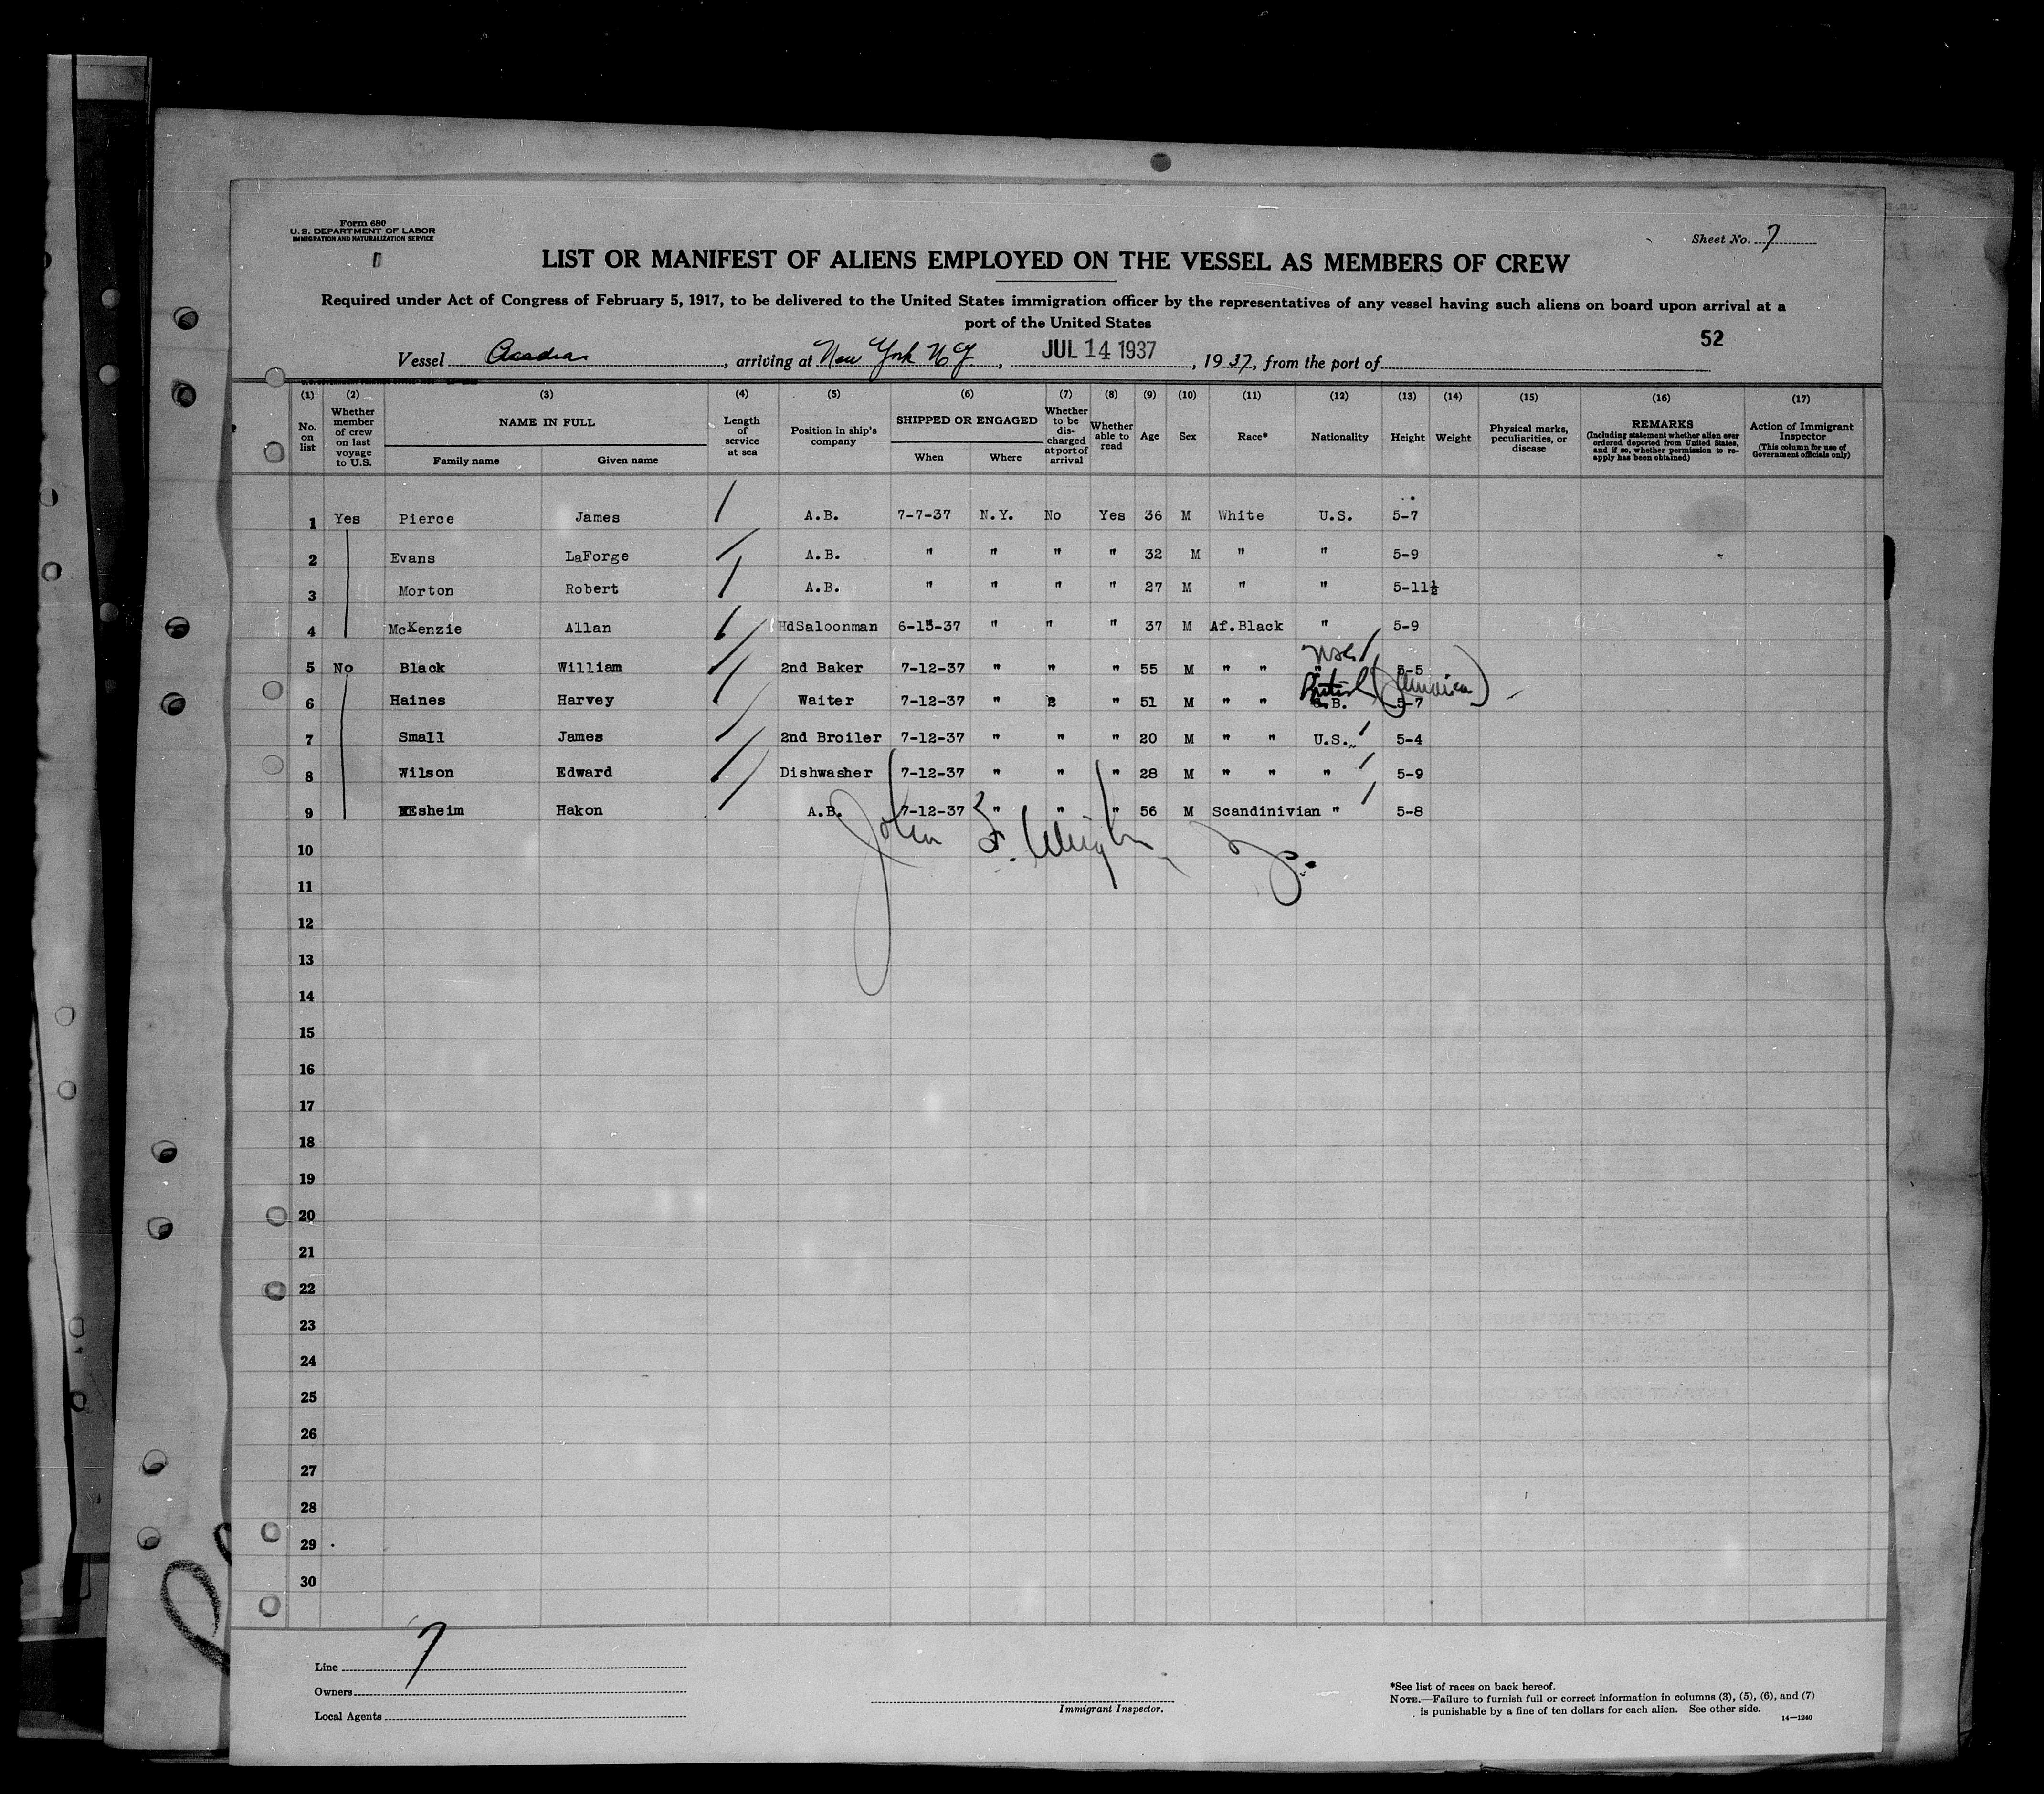 Form 680
U. S. DEPARTMENT OF LABOR
IMMIGRATION AND NATURALIZATION SERVICE
Sheet No. 7
LIST OR MANIFEST OF ALIENS EMPLOYED ON THE VESSEL AS MEMBERS OF CREW
Required under Act of Congress of February 5, 1917, to be delivered to the United States immigration officer by the representatives of any vessel having such aliens on board upon arrival at a
port of the United States
52
Vessel Acadia, arriving at New York N Y, JUL 14 1937, 1937, from the port of
(1) (2) (3) (4) (5) (6) (7) (8) (9) (10) (11) (12) (13) (14) (15) (16) (17)
No. on list
Whether member of crew on last voyage to U.S.
NAME IN FULL
Family name
Given name
Length of service at sea
Position in ship's company
SHIPPED OR ENGAGED
When
Where
Whether to be discharged at port of arrival
Whether able to read
Age
Sex
Race*
Nationality
Height
Weight
Physical marks, peculiarities, or disease
REMARKS
(Including statement whether alien ever ordered deported from United States, and if so, whether permission to re-apply has been obtained)
Action of Immigrant Inspector
(This column for use of Government officials only)
1 Yes Pierce James A.B. 7-7-37 N.Y. No Yes 36 M White U.S. 5-7
2 Evans LaForge A.B. " " " " 32 M " " 5-9
3 Morton Robert A.B. " " " " 27 M " " 5-11½
4 McKenzie Allan HdSaloonman 6-15-37 " " " 37 M Af.Black " 5-9
5 No Black William 2nd Baker 7-12-37 " " " 55 M " " " 5-5
6 Haines Harvey Waiter 7-12-37 " " 51 M " " British (Jamaica) 5-7
7 Small James 2nd Broiler 7-12-37 " " " 20 M " " U.S. 5-4
8 Wilson Edward Dishwasher 7-12-37 " " " 28 M " " " 5-9
9 Esheim Hakon A.B. 7-12-37 " " " 56 M Scandinivian " 5-8
John F.
10
11
12
13
14
15
16
17
18
19
20
21
22
23
24
25
26
27
28
29
30
7
Line
Owners
Local Agents
Immigrant Inspector.
*See list of races on back hereof.
NOTE.—Failure to furnish full or correct information in columns (3), (5), (6), and (7)
is punishable by a fine of ten dollars for each alien. See other side.
14—1240